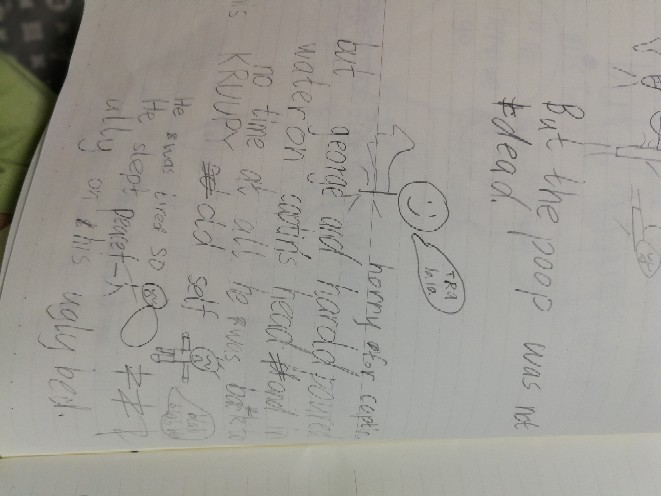 But the poop was not
dead.
TRA
LALA
horray for captin
but george and harold poured
water on captins head and in
no time at all he was back
KRUPPY old self
He was tired so
He slept peacef-
ully on his ugly bed.
zzz